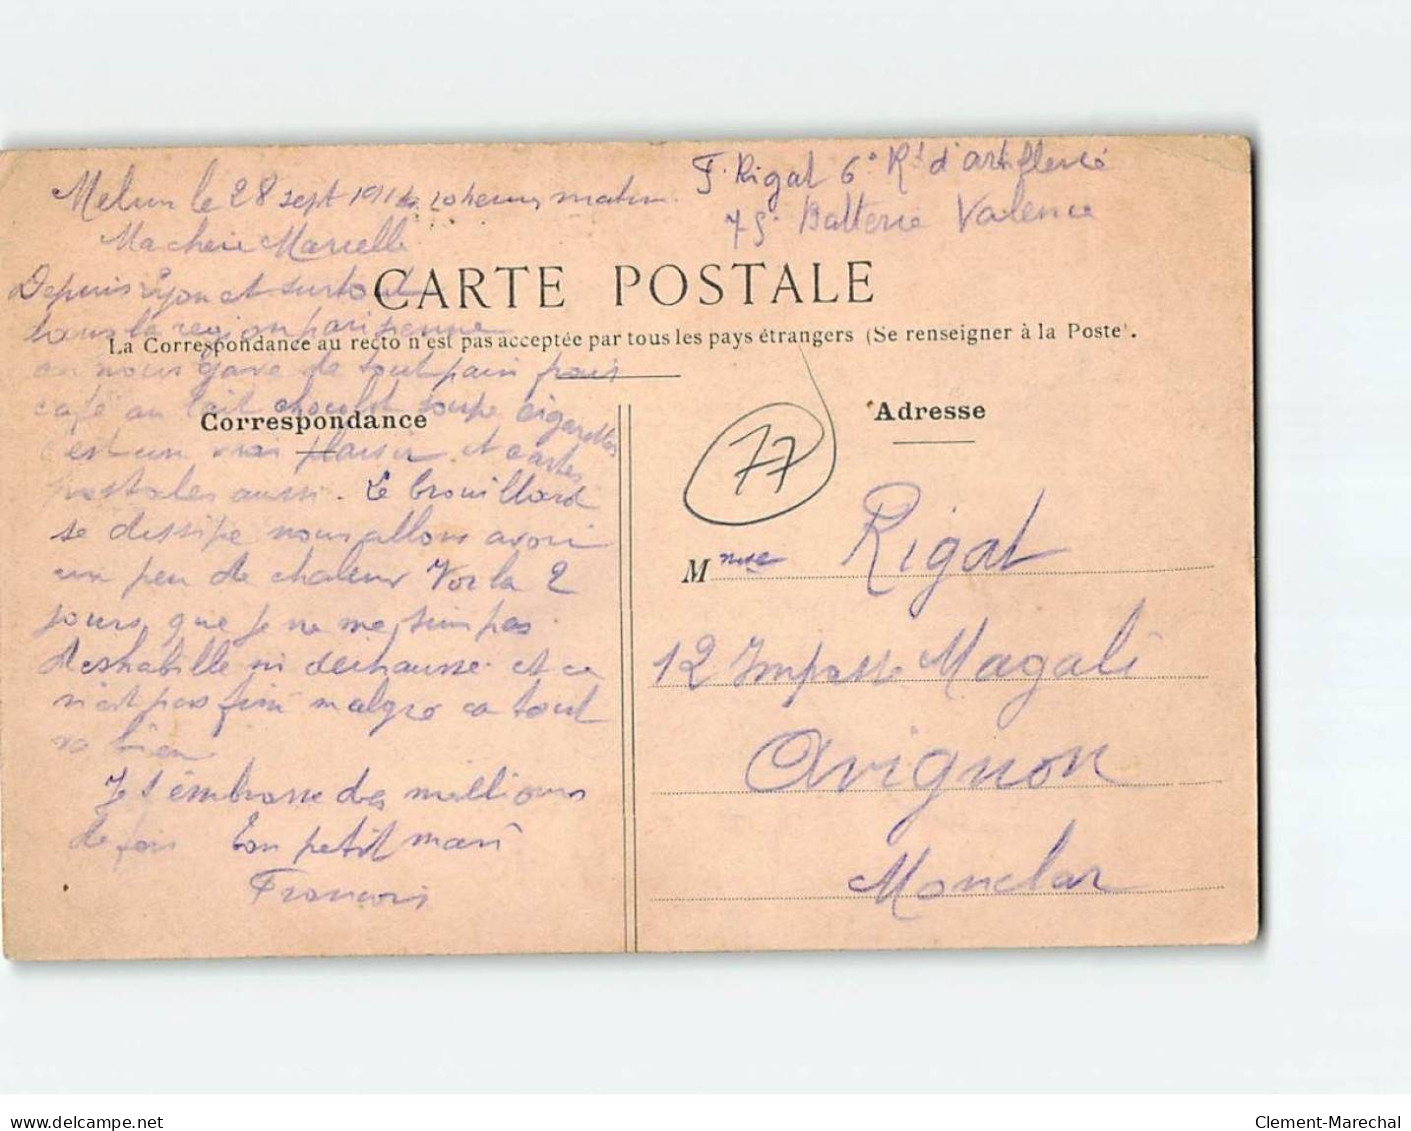 Melun le 28 sept 1914 10 heures matin
F. Rigat 6e Rt d'artillerie
75e Batterie Valence
Ma cherie Marcelle
Depuis Lyon et surtout
CARTE POSTALE
dans la region parisienne
La Correspondance au recto n'est pas acceptée par tous les pays étrangers (Se renseigner à la Poste).
on nous gave de tout pain frais
café au lait chocolat soupe cigarettes
Correspondance
c'est un vrai plaisir et cartes
postales aussi. Le brouillard
se dissipe nous allons avoir
un peu de chaleur Voila 2
jours que je ne me suis pas
deshabille ni dechausse et ce
n'est pas fini malgre ca tout
va bien
Je t'embrasse des millions
de fois Ton petit mari
Francois
Adresse
77
Mme Rigat
12 Impasse Magali
Avignon
Monclar
delcampe.net
Clement-Marechal